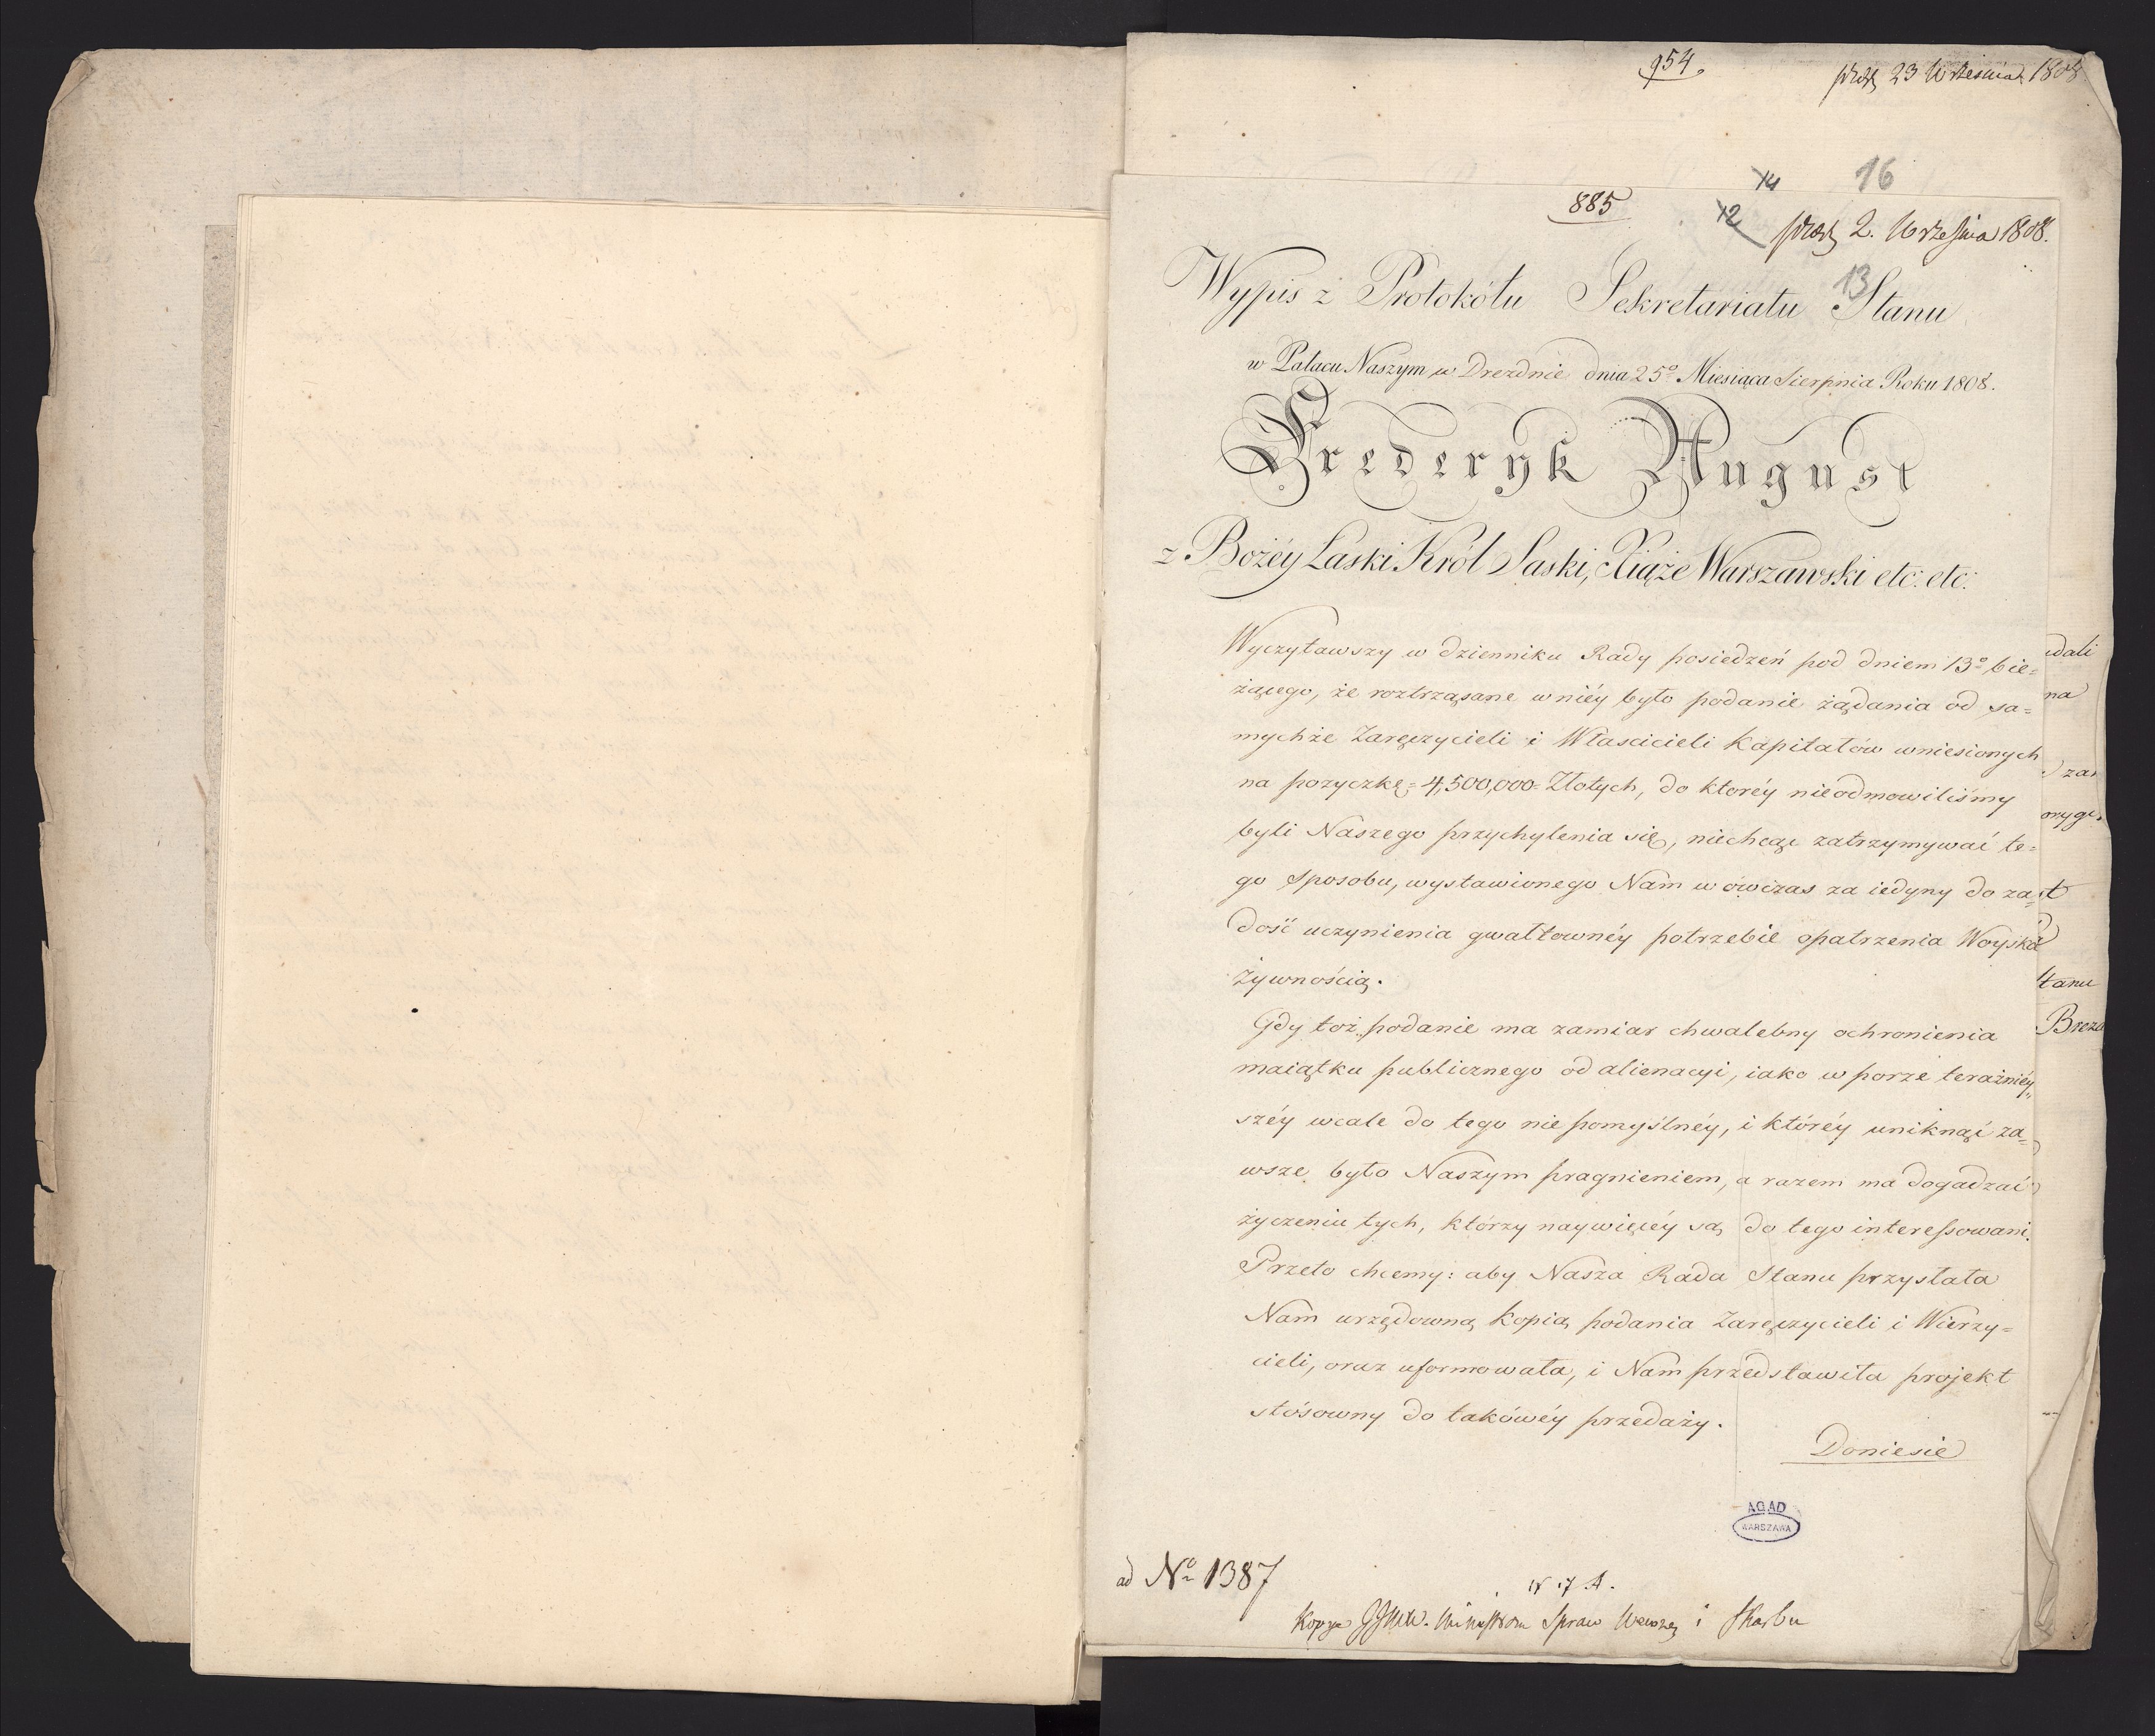 954.
prez 23 Września 1808
16
14
885
12
prez 2. Września 1808.
13
Wypis z Protokółu Sekretariatu Stanu
w Pałacu Naszym w Dreźnie dnia 25º Miesiąca Sierpnia Roku 1808.
Frederyk August
z Bożéy Łaski Król Saski, Xiąże Warszawski etc: etc:
Wyczytawszy w dzienniku Rady posiedzeń pod dniem 13º bie=
żącego, że roztrząsane w niéy było podanie żądania od sa=
mychże Zaręczycieli i Właścicieli kapitałów wniesionych
na pożyczkę = 4,500,000 = Złotych, do któréy nieodmowiliśmy
byli Naszego przychylenia się, niechcąc zatrzymywać te=
go sposobu, wystawionego Nam w ówczas za iedyny do za=
dość uczynienia gwałtownéy potrzebie opatrzenia Woyska
żywnością.
Gdy toż podanie ma zamiar chwalebny ochronienia
maiątku publicznego od alienacyi, iako w porze teraźniéy=
széy wcale do tego nie pomyślnéy, i któréy uniknąć za=
wsze było Naszym pragnieniem, a razem ma dogadzać
życzeniu tych, którzy naywięcéy są do tego interessowani.
Przeto chcemy: aby Nasza Rada Stanu przysłała
Nam urzędowną kopią podania Zaręczycieli i Wierzy=
cieli, oraz uformowała, i Nam przedstawiła projekt
stósowny do takowéy przedaży.
Doniesie
AGAD
WARSZAWA
ad Nº 1387
Kopye JJWW. Ministrom Spraw Wewnę i Skarbu
dali
na
zar
orygi
st
Stanu
Breza